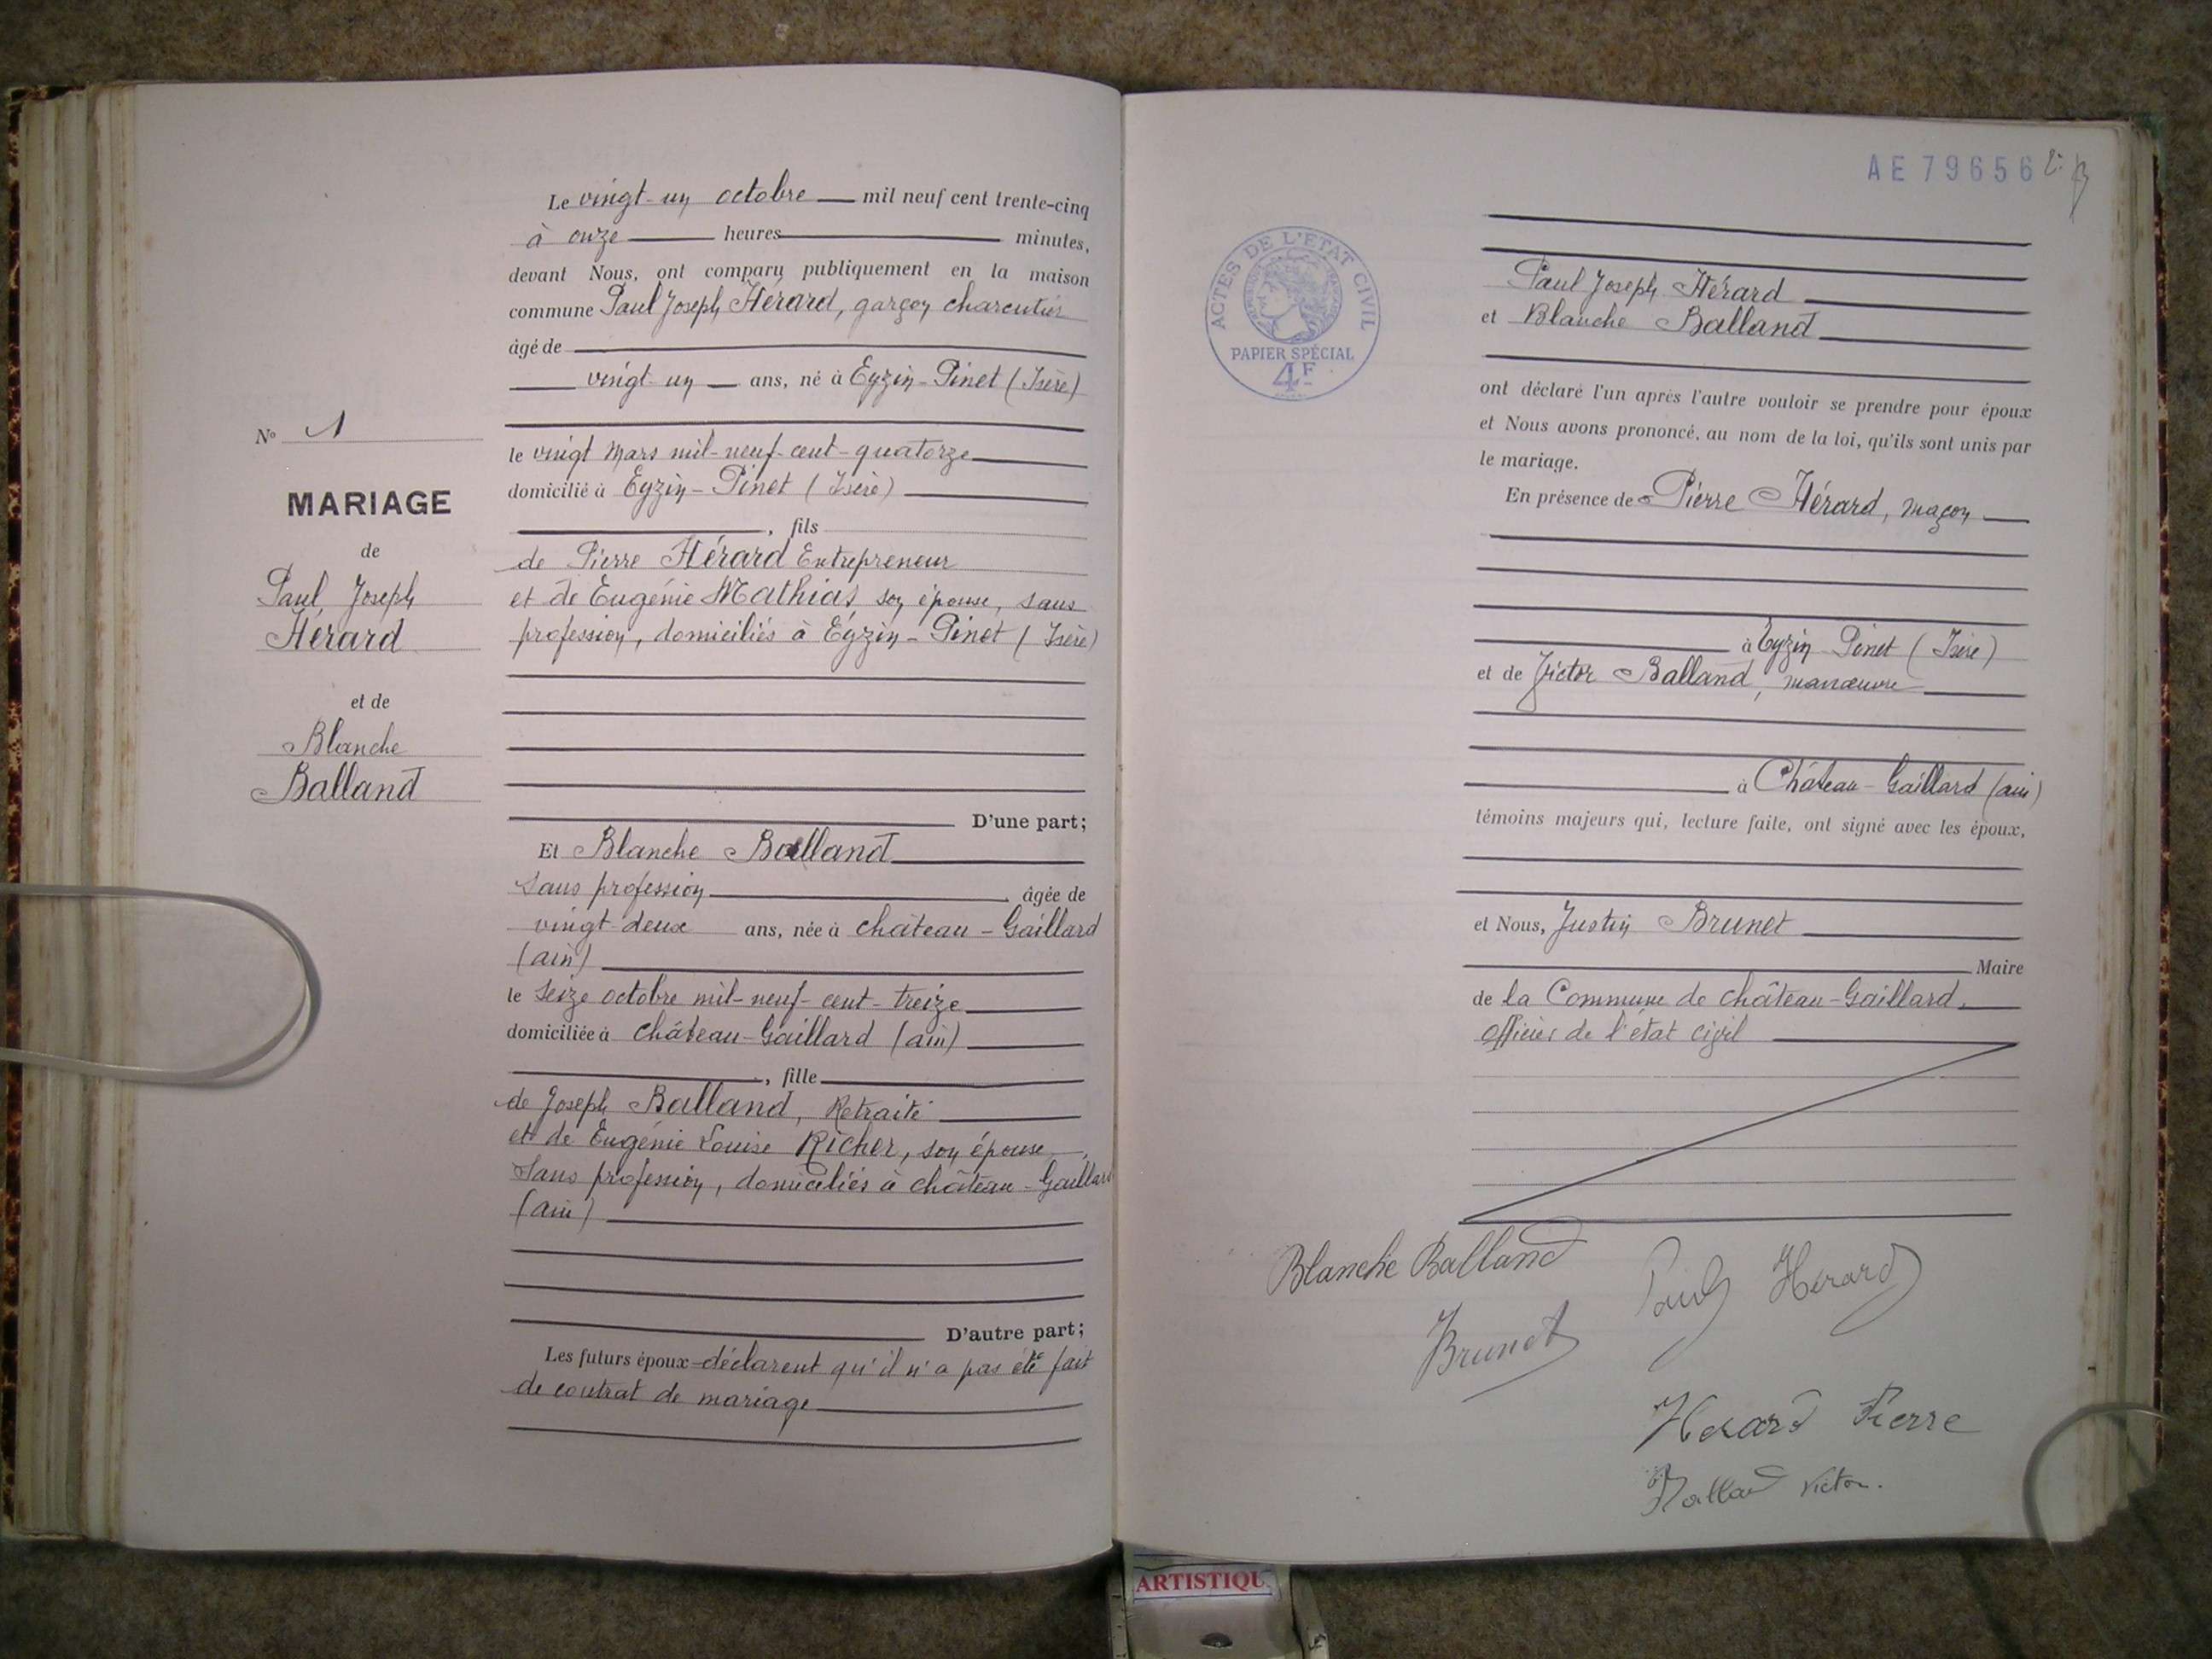 N° 1
MARIAGE
de
Paul Joseph
Hérard
et de
Blanche
Balland
Le vingt-un octobre mil neuf cent trente-cinq
à onze heures minutes,
devant Nous, ont comparu publiquement en la maison
commune Paul Joseph Hérard, garçon charcutier
âgé de
vingt-un ans, né à Eyzin-Pinet (Isère)
le vingt mars mil-neuf-cent-quatorze
domicilié à Eyzin-Pinet (Isère)
, fils
de Pierre Hérard Entrepreneur
et de Eugénie Mathias, son épouse, sans
profession, domiciliés à Eyzin-Pinet (Isère)
D'une part;
Et Blanche Balland
sans profession âgée de
vingt-deux ans, née à château-Gaillard
(ain)
le seize octobre mil-neuf-cent-treize
domiciliée à château-Gaillard (ain)
, fille
de Joseph Balland, Retraité
et de Eugénie Louise Richer, son épouse,
sans profession, domiciliés à château-Gaillard
(ain)
D'autre part;
Les futurs époux déclarent qu'il n'a pas été fait
de contrat de mariage
AE 79656
ACTES DE L'ETAT CIVIL
PAPIER SPÉCIAL
4F
Paul Joseph Hérard
et Blanche Balland
ont déclaré l'un après l'autre vouloir se prendre pour époux
et Nous avons prononcé, au nom de la loi, qu'ils sont unis par
le mariage.
En présence de Pierre Hérard, maçon
à Eyzin-Pinet (Isère)
et de Victor Balland, manœuvre
à Château-Gaillard (ain)
témoins majeurs qui, lecture faite, ont signé avec les époux,
et Nous, Justin Brunet
Maire
de la Commune de château-Gaillard,
officier de l'état civil
Blanche Balland
Paul Hérard
Brunet
Herard Pierre
Balland Victor.
ARTISTIQU